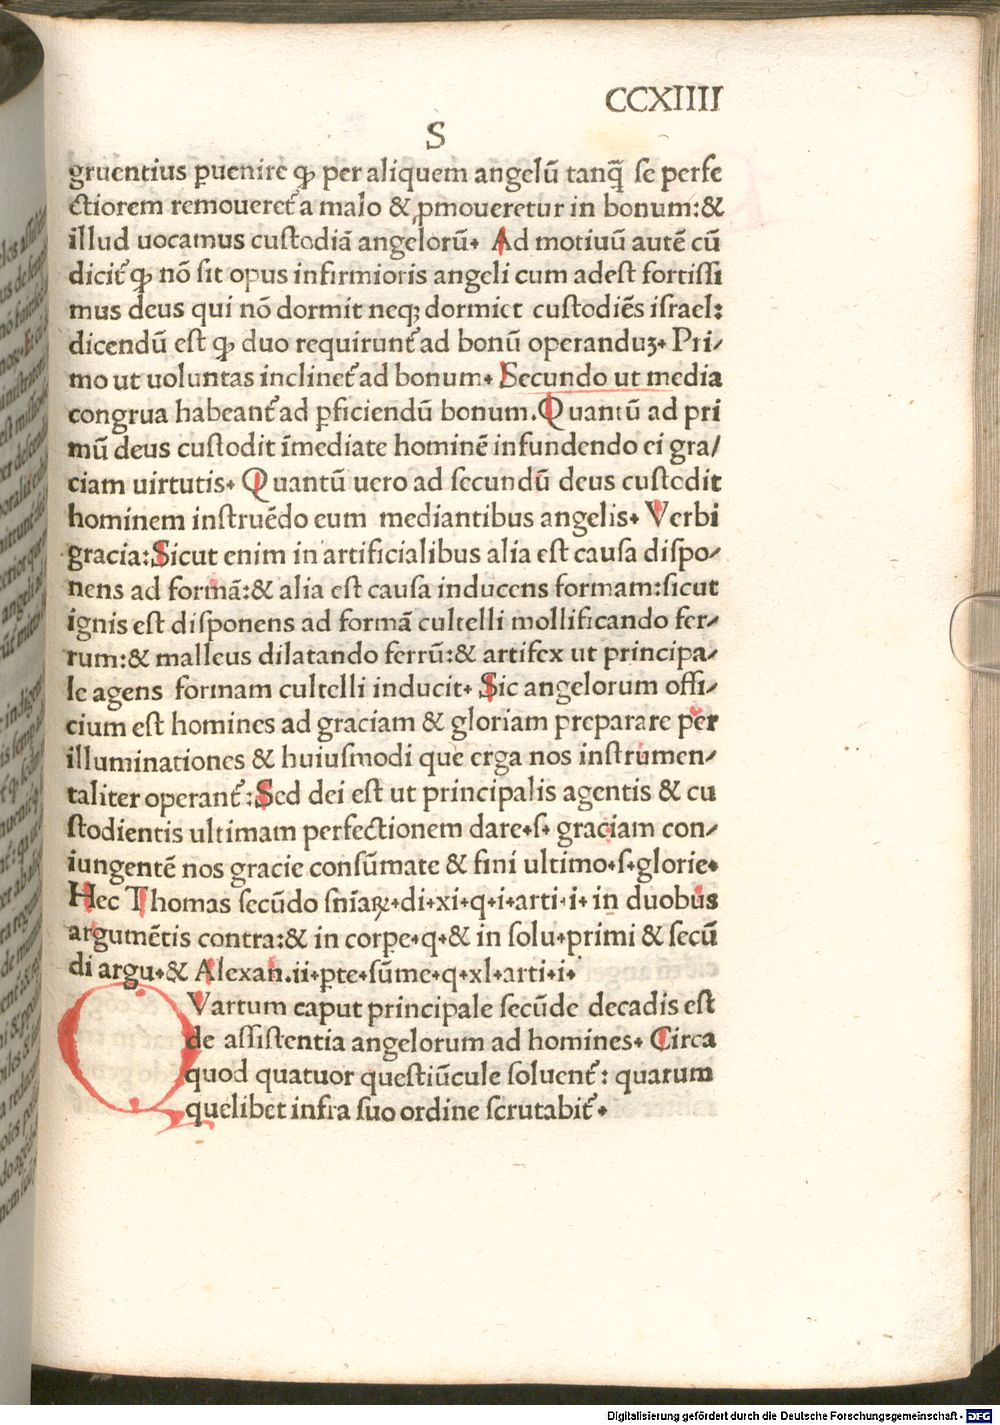 CCXIIII
S
gruentius ꝑuenire ꝙ per aliquem angelū tanq̄ se perfe
ctiorem remoueret᷑ a malo & ꝓmoueretur in bonum:&
illud uocamus custodiā angelorū. Ad motiuū autē cū
dicit᷑ ꝙ nō sit opus infirmioris angeli cum adest fortissi
mus deus qui nō dormit neqꝫ dormiet custodiēs israel:
dicendū est ꝙ duo requirunt᷑ ad bonū operanduꝫ. Pri/
mo ut uoluntas inclinet᷑ ad bonum. Secundo ut media
congrua habeant᷑ ad ꝑficiendū bonum. Quantū ad pri
mū deus custodit īmediate hominē infundendo ei gra/
ciam uirtutis. Quantū uero ad secundū deus custodit
hominem instruēdo eum mediantibus angelis. Verbi
gracia: Sicut enim in artificialibus alia est causa dispo/
nens ad formā:& alia est causa inducens formam:sicut
ignis est disponens ad formā cultelli mollificando fer/
rum:& malleus dilatando ferrū:& artifex ut principa/
le agens formam cultelli inducit. Sic angelorum offi/
cium est homines ad graciam & gloriam preparare per
illuminationes & huiusmodi que erga nos instrumen/
taliter operant᷑: Sed dei est ut principalis agentis & cu
stodientis ultimam perfectionem dare.s. graciam con/
iungentē nos gracie consūmate & fini ultimo.s.glorie.
Hec Thomas secūdo sniāꝝ.di.xi.q.i.arti.i. in duobus
argumētis contra:& in corpe.q.& in solu.primi & secū
di argu.& Alexan.ii.ꝑte.sūme.q.xl.arti.i.
QVartum caput principale secūde decadis est
de assistentia angelorum ad homines. Circa
quod quatuor questiūcule soluent᷑: quarum
quelibet infra suo ordine scrutabit᷑.
Digitalisierung gefördert durch die Deutsche Forschungsgemeinschaft - DFG